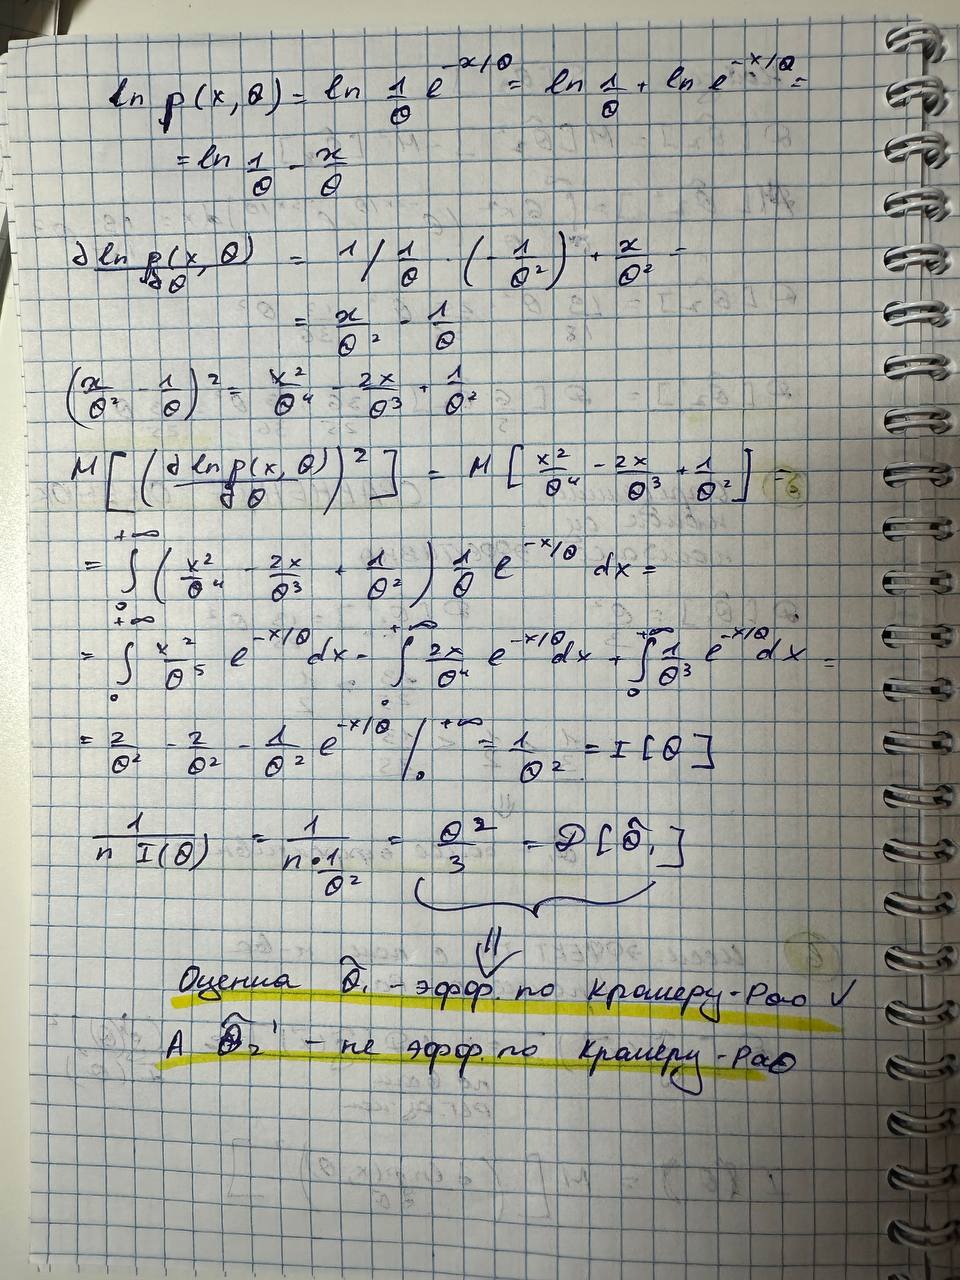 ln p(x, θ) = ln 1/θ e^(-x/θ) = ln 1/θ + ln e^(-x/θ) =
= ln 1/θ - x/θ
∂ ln p(x, θ)/∂θ = 1 / 1/θ · (- 1/θ²) + x/θ² =
= x/θ² - 1/θ
(x/θ² - 1/θ)² = x²/θ⁴ - 2x/θ³ + 1/θ²
M[(∂ ln p(x, θ)/∂θ)²] = M[x²/θ⁴ - 2x/θ³ + 1/θ²] =
= ∫₀^(+∞) (x²/θ⁴ - 2x/θ³ + 1/θ²) 1/θ e^(-x/θ) dx =
= ∫₀^(+∞) x²/θ⁵ e^(-x/θ) dx - ∫₀^(+∞) 2x/θ⁴ e^(-x/θ) dx + ∫₀^(+∞) 1/θ³ e^(-x/θ) dx =
= 2/θ² - 2/θ² - 1/θ² e^(-x/θ) |₀^(+∞) = 1/θ² = I[θ]
1/(n I(θ)) = 1/(n · 1/θ²) = θ²/3 = D[θ̃₁]
⇓
Оценка θ̃₁ - эфф. по Крамеру-Рао √
А θ̃₂' - не эфф. по Крамеру-Рао